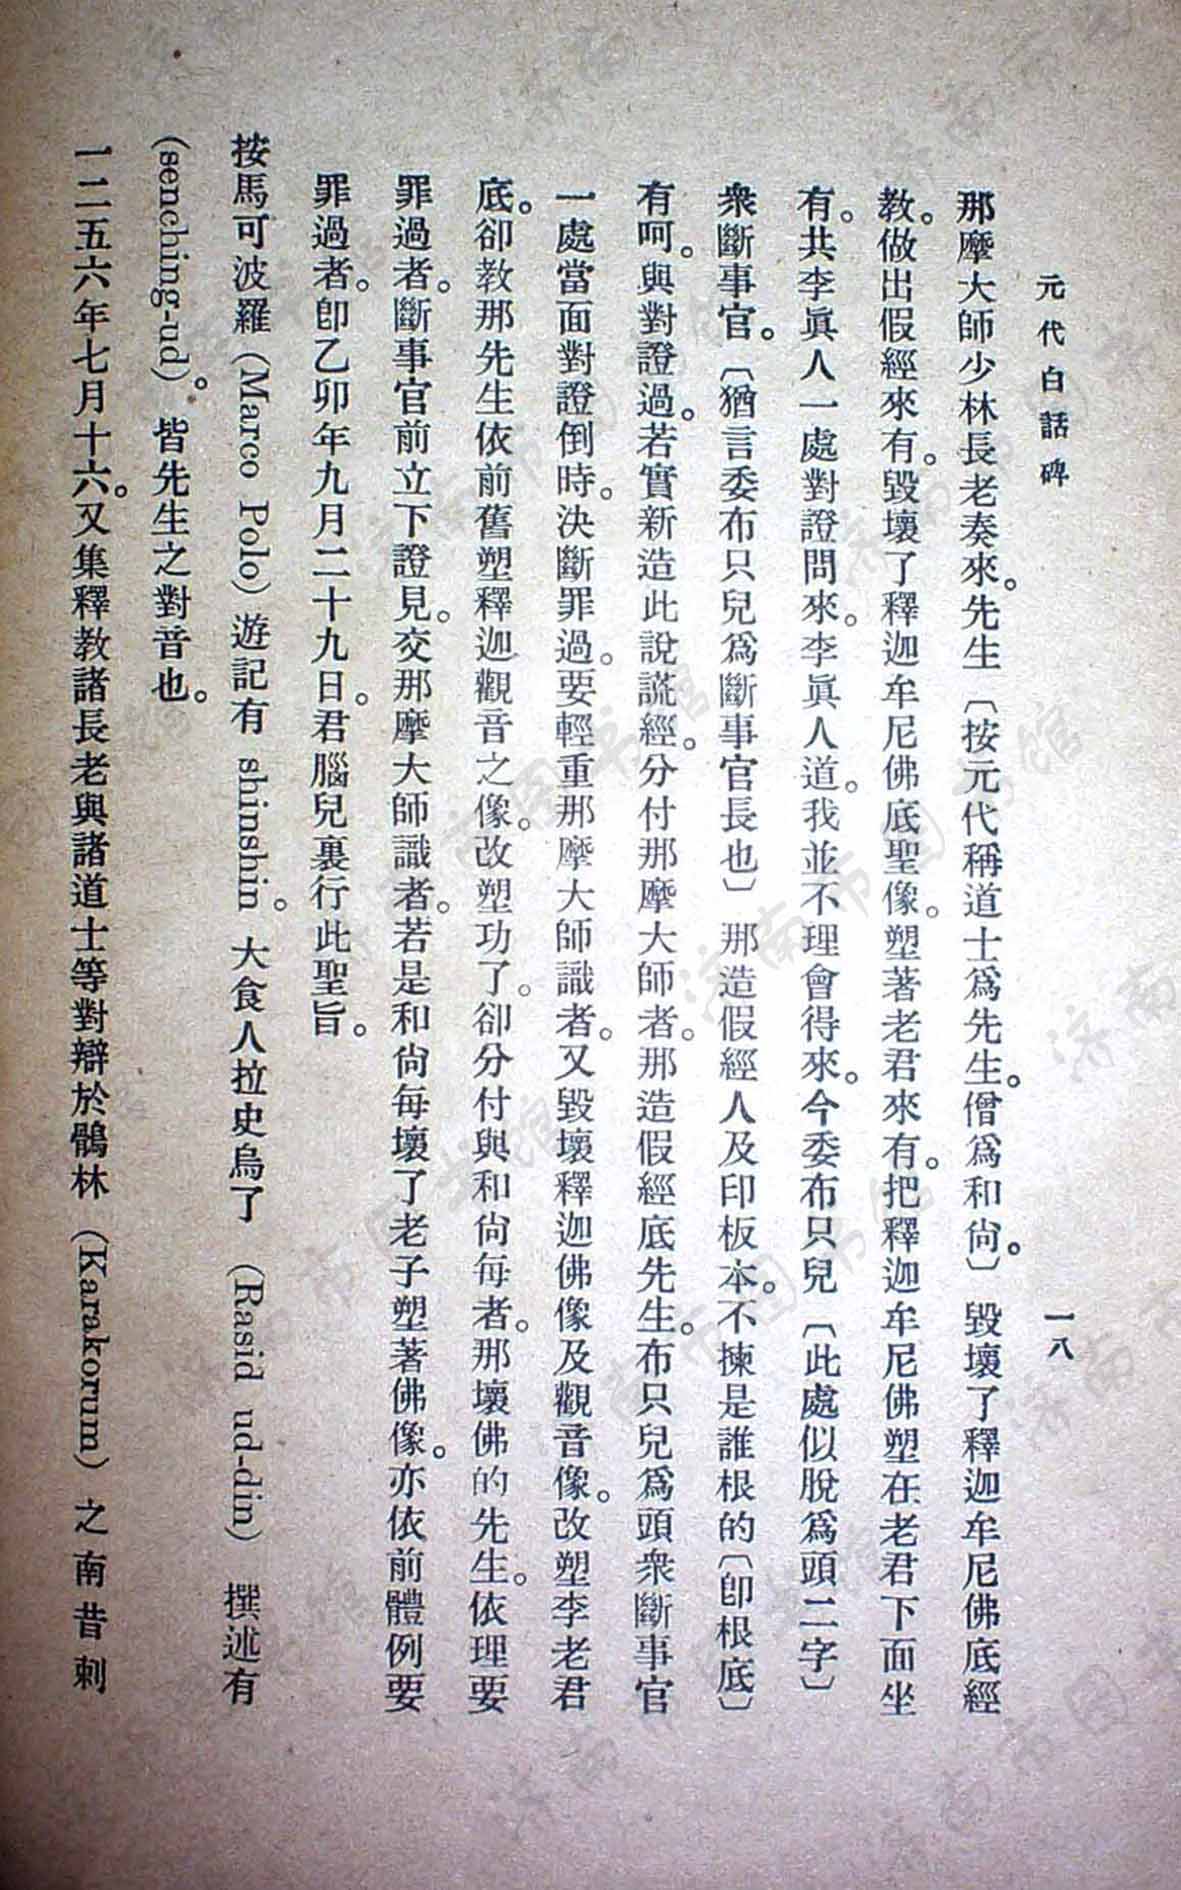 元代白話碑
一八
那摩大師少林長老奏來。先生〔按元代稱道士爲先生。僧爲和尙。〕毀壞了釋迦牟尼佛底經
教。做出假經來有。毀壞了釋迦牟尼佛底聖像。塑著老君來有。把釋迦牟尼佛塑在老君下面坐
有。共李眞人一處對證問來。李眞人道。我並不理會得來。今委布只兒〔此處似脫爲頭二字〕
衆斷事官。〔猶言委布只兒爲斷事官長也〕那造假經人及印板本。不揀是誰根的〔卽根底〕
有呵。與對證過。若實新造此說謊經。分付那摩大師者。那造假經底先生。布只兒爲頭衆斷事官
一處當面對證倒時。決斷罪過。要輕重那摩大師識者。又毀壞釋迦佛像及觀音像。改塑李老君
底。卻教那先生依前舊塑釋迦觀音之像。改塑功了。卻分付與和尙每者。那壞佛的先生。依理要
罪過者。斷事官前立下證見。交那摩大師識者。若是和尙每壞了老子塑著佛像。亦依前體例要
罪過者。卽乙卯年九月二十九日。君腦兒裏行此聖旨。
按馬可波羅（Marco Polo）遊記有 shinshin。大食人拉史烏了（Rasid ud-din）撰述有
（senching-ud）。皆先生之對音也。
一二五六年七月十六。又集釋教諸長老與諸道士等對辯於鶻林（Karakorum）之南昔剌
濟南市图书馆